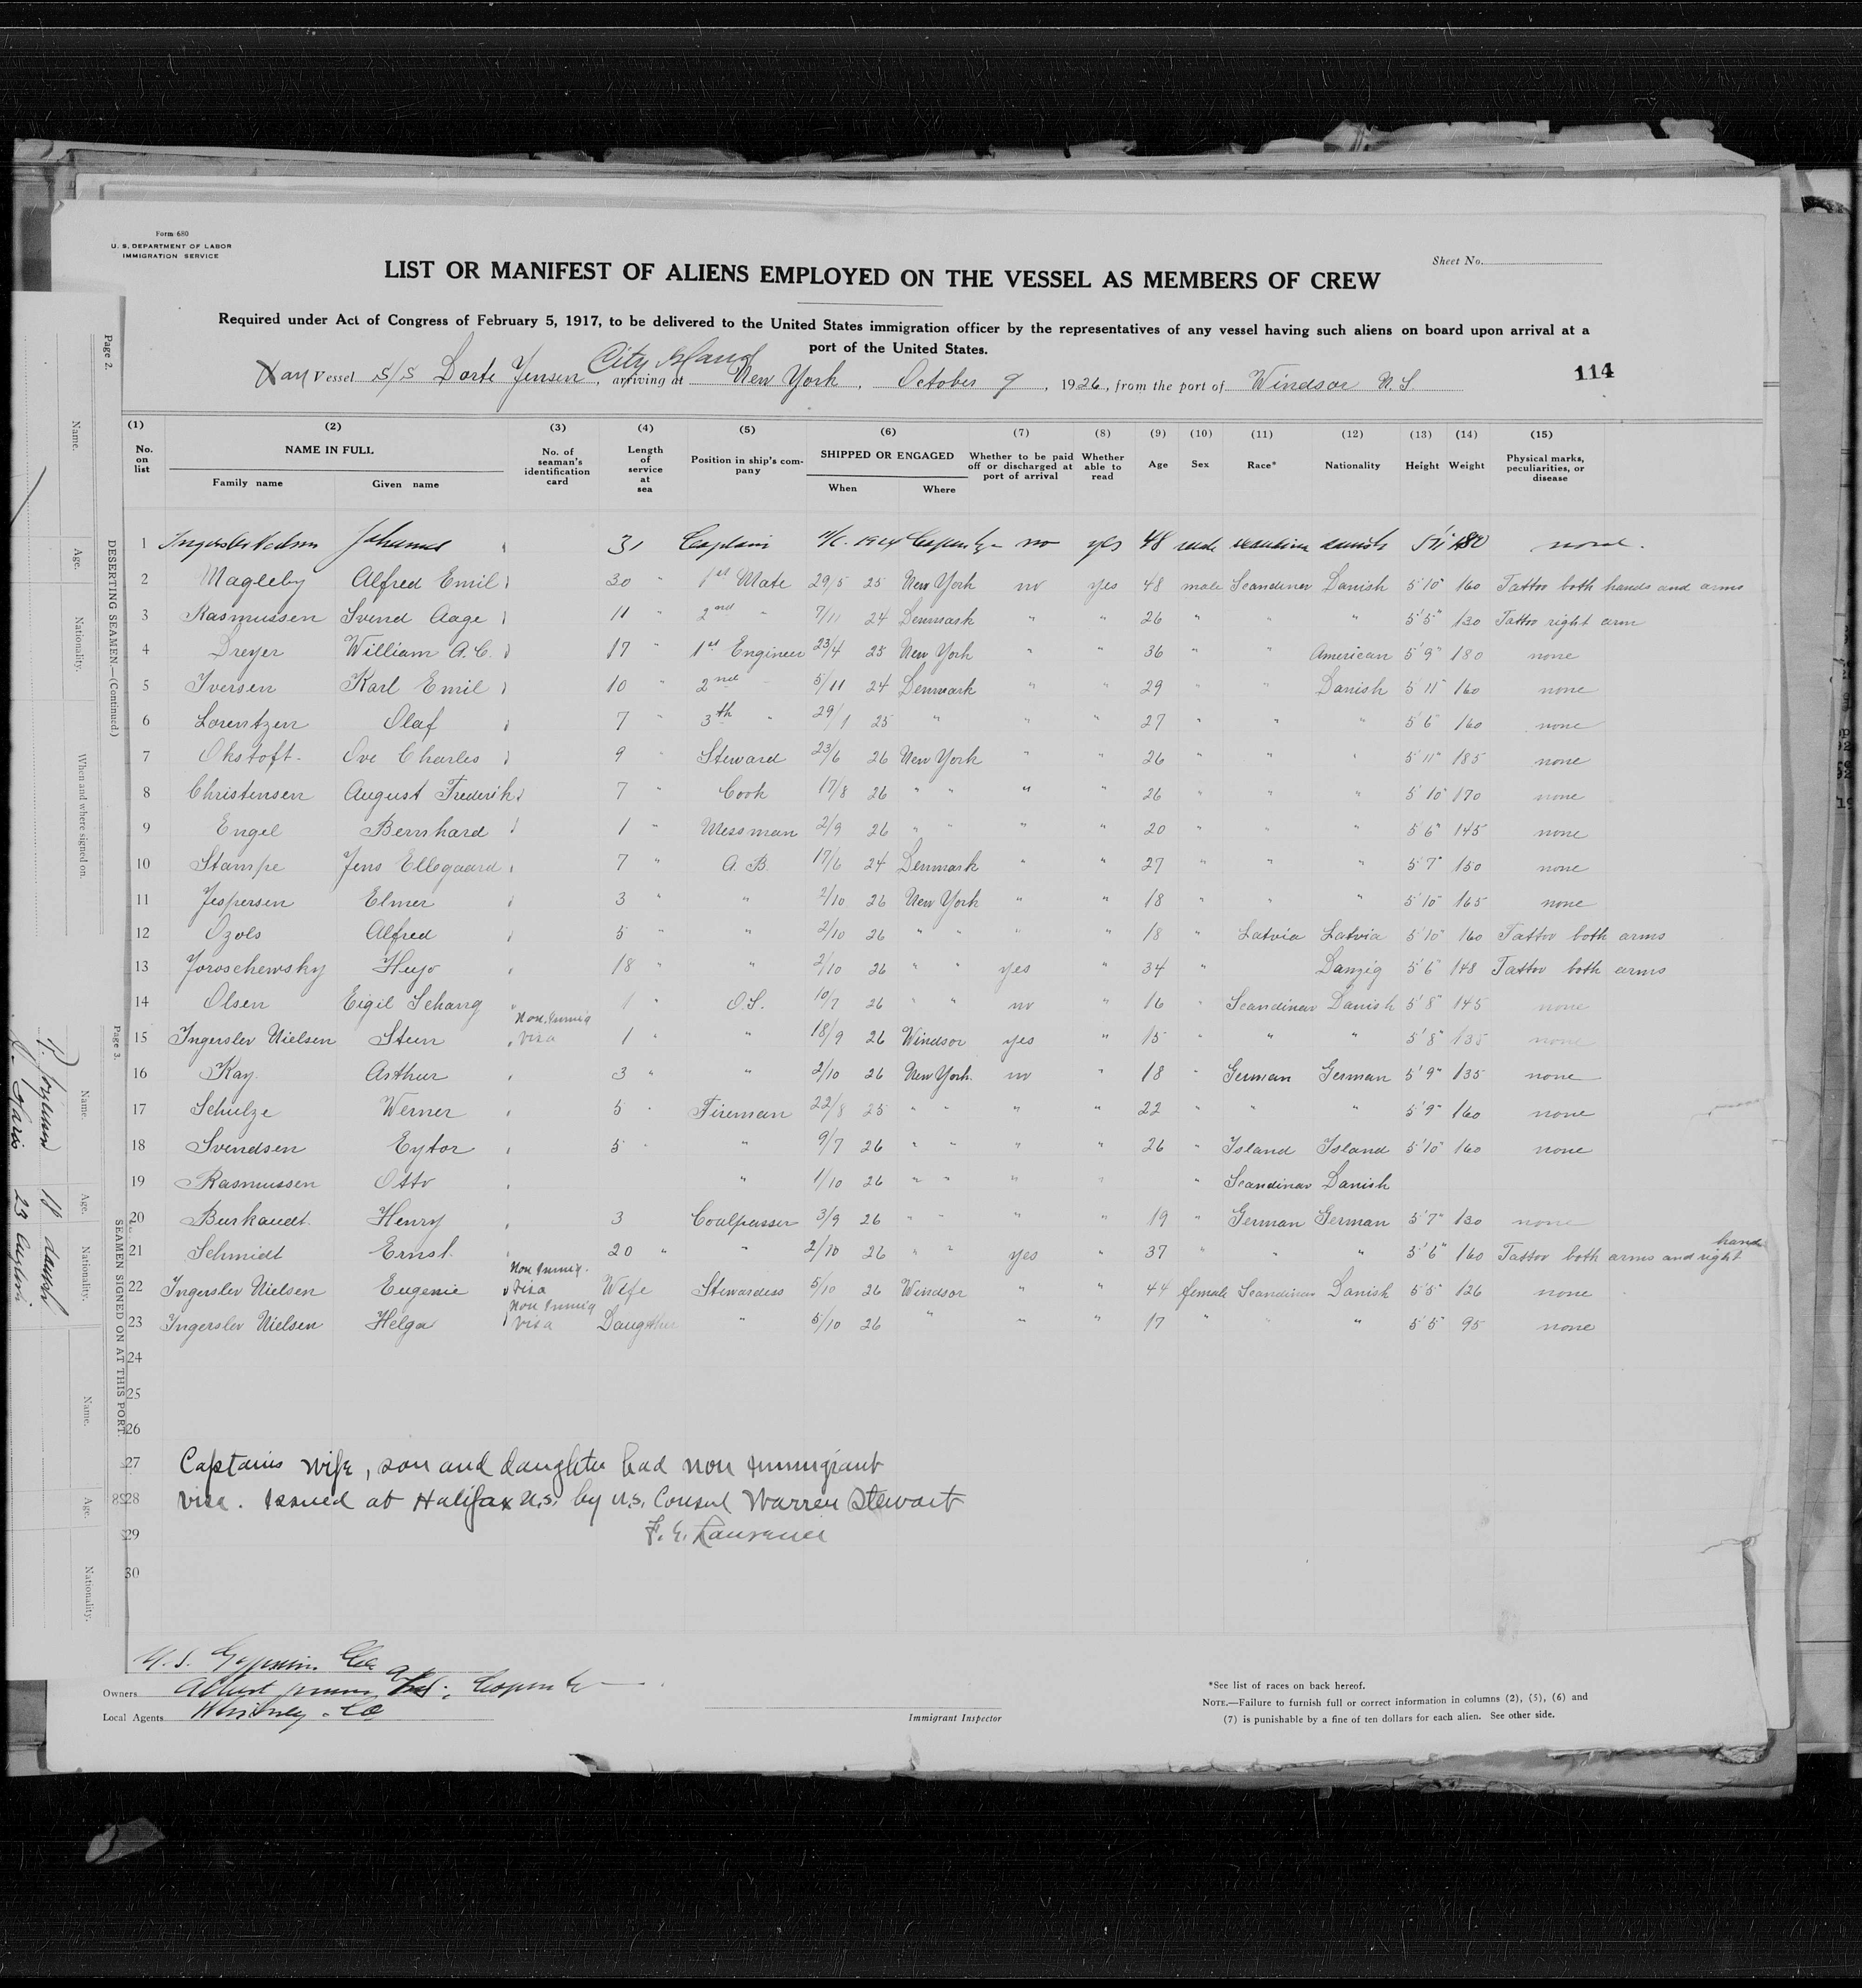 Form 680
U. S. DEPARTMENT OF LABOR
IMMIGRATION SERVICE
Sheet No.
LIST OR MANIFEST OF ALIENS EMPLOYED ON THE VESSEL AS MEMBERS OF CREW
Required under Act of Congress of February 5, 1917, to be delivered to the United States immigration officer by the representatives of any vessel having such aliens on board upon arrival at a
port of the United States.
City Island
Vessel S/S Dorte Jensen, arriving at New York, October 9, 1926, from the port of Windsor N.S. 114
(1) (2) (3) (4) (5) (6) (7) (8) (9) (10) (11) (12) (13) (14) (15)
No. on list NAME IN FULL Family name Given name No. of seaman's identification card Length of service at sea Position in ship's company SHIPPED OR ENGAGED When Where Whether to be paid off or discharged at port of arrival Whether able to read Age Sex Race* Nationality Height Weight Physical marks, peculiarities, or disease
1 31 Captain no yes 48 danish 5'11 180 none.
2 Magleby Alfred Emil 30 " 1st Mate 29/5 25 New York no yes 48 male Scandinav Danish 5'10" 160 Tattoo both hands and arms
3 Rasmussen Svend Aage 11 " 2nd " 7/11 24 Denmark " " 26 " " " 5'5" 130 Tattoo right arm
4 Dreyer William A.C. 17 " 1st Engineer 23/4 25 New York " " 36 " " American 5'9" 180 none
5 Iversen Karl Emil 10 " 2nd " 5/11 24 Denmark " " 29 " " Danish 5'11" 160 none
6 Lorentzen Olaf 7 " 3th " 29/1 25 " " " 27 " " " 5'6" 160 none
7 Okstoft Ove Charles 9 " Steward 23/6 26 New York " " 26 " " " 5'11" 185 none
8 Christensen August Frederik 7 " Cook 17/8 26 " " " " 26 " " " 5'10" 170 none
9 Engel Bernhard 1 " Messman 2/9 26 " " " " 20 " " " 5'6" 145 none
10 Stampe Jens Ellegaard 7 " A.B. 17/6 24 Denmark " " 27 " " " 5'7" 150 none
11 Jespersen Elmer 3 " " 2/10 26 New York " " 18 " " " 5'10" 165 none
12 Ozols Alfred 5 " " 2/10 26 " " " " 18 " Latvia Latvia 5'10" 160 Tattoo both arms
13 Joroschewsky Hugo 18 " " 2/10 26 " " yes " 34 " Danzig 5'6" 148 Tattoo both arms
14 Olsen Eigil Schang 1 " O.S. 10/7 26 " " no " 16 " Scandinav Danish 5'8" 145 none
15 Ingerslev Nielsen Steen Non Immig Visa 1 " " 18/9 26 Windsor yes " 15 " " " 5'8" 135 none
16 Kay Arthur 3 " " 2/10 26 New York no " 18 " German German 5'9" 135 none
17 Schulze Werner 5 " Fireman 22/8 25 " " " " 22 " " " 5'9" 160 none
18 Svendsen Eytor 5 " " 9/7 26 " " " " 26 " Island Island 5'10" 160 none
19 Rasmussen Otto " 1/10 26 " " " " " Scandinav Danish
20 Burkandt Henry 3 Coalpasser 3/9 26 " " " " 19 " German German 5'7" 130 none
21 Schmidt Ernst 20 " " 2/10 26 " " yes " 37 " " " 5'6" 160 Tattoo both arms and right hand
22 Ingerslev Nielsen Eugenie Non Immig. Visa Wife Stewardess 5/10 26 Windsor " " 44 female Scandinav Danish 5'5" 126 none
23 Ingerslev Nielsen Helga Non Immig Visa Daugther " 5/10 26 " " " 17 " " " 5'5" 95 none
24
25
26
27 Captains wife, son and daughter had non immigrant
28 visa. Issued at Halifax N.S. by U.S. Consul Warren Stewart
29 F. E. Laurence
30
U. S. Gypsum Co
Owners
Local Agents Whitney Co
Immigrant Inspector
*See list of races on back hereof.
NOTE.—Failure to furnish full or correct information in columns (2), (5), (6) and
(7) is punishable by a fine of ten dollars for each alien. See other side.
Page 2.
DESERTING SEAMEN—(Continued.)
Name.
Age.
Nationality.
When and where signed on.
Page 3.
SEAMEN SIGNED ON AT THIS PORT.
Name.
Age.
Nationality.
Name.
Age.
Nationality.